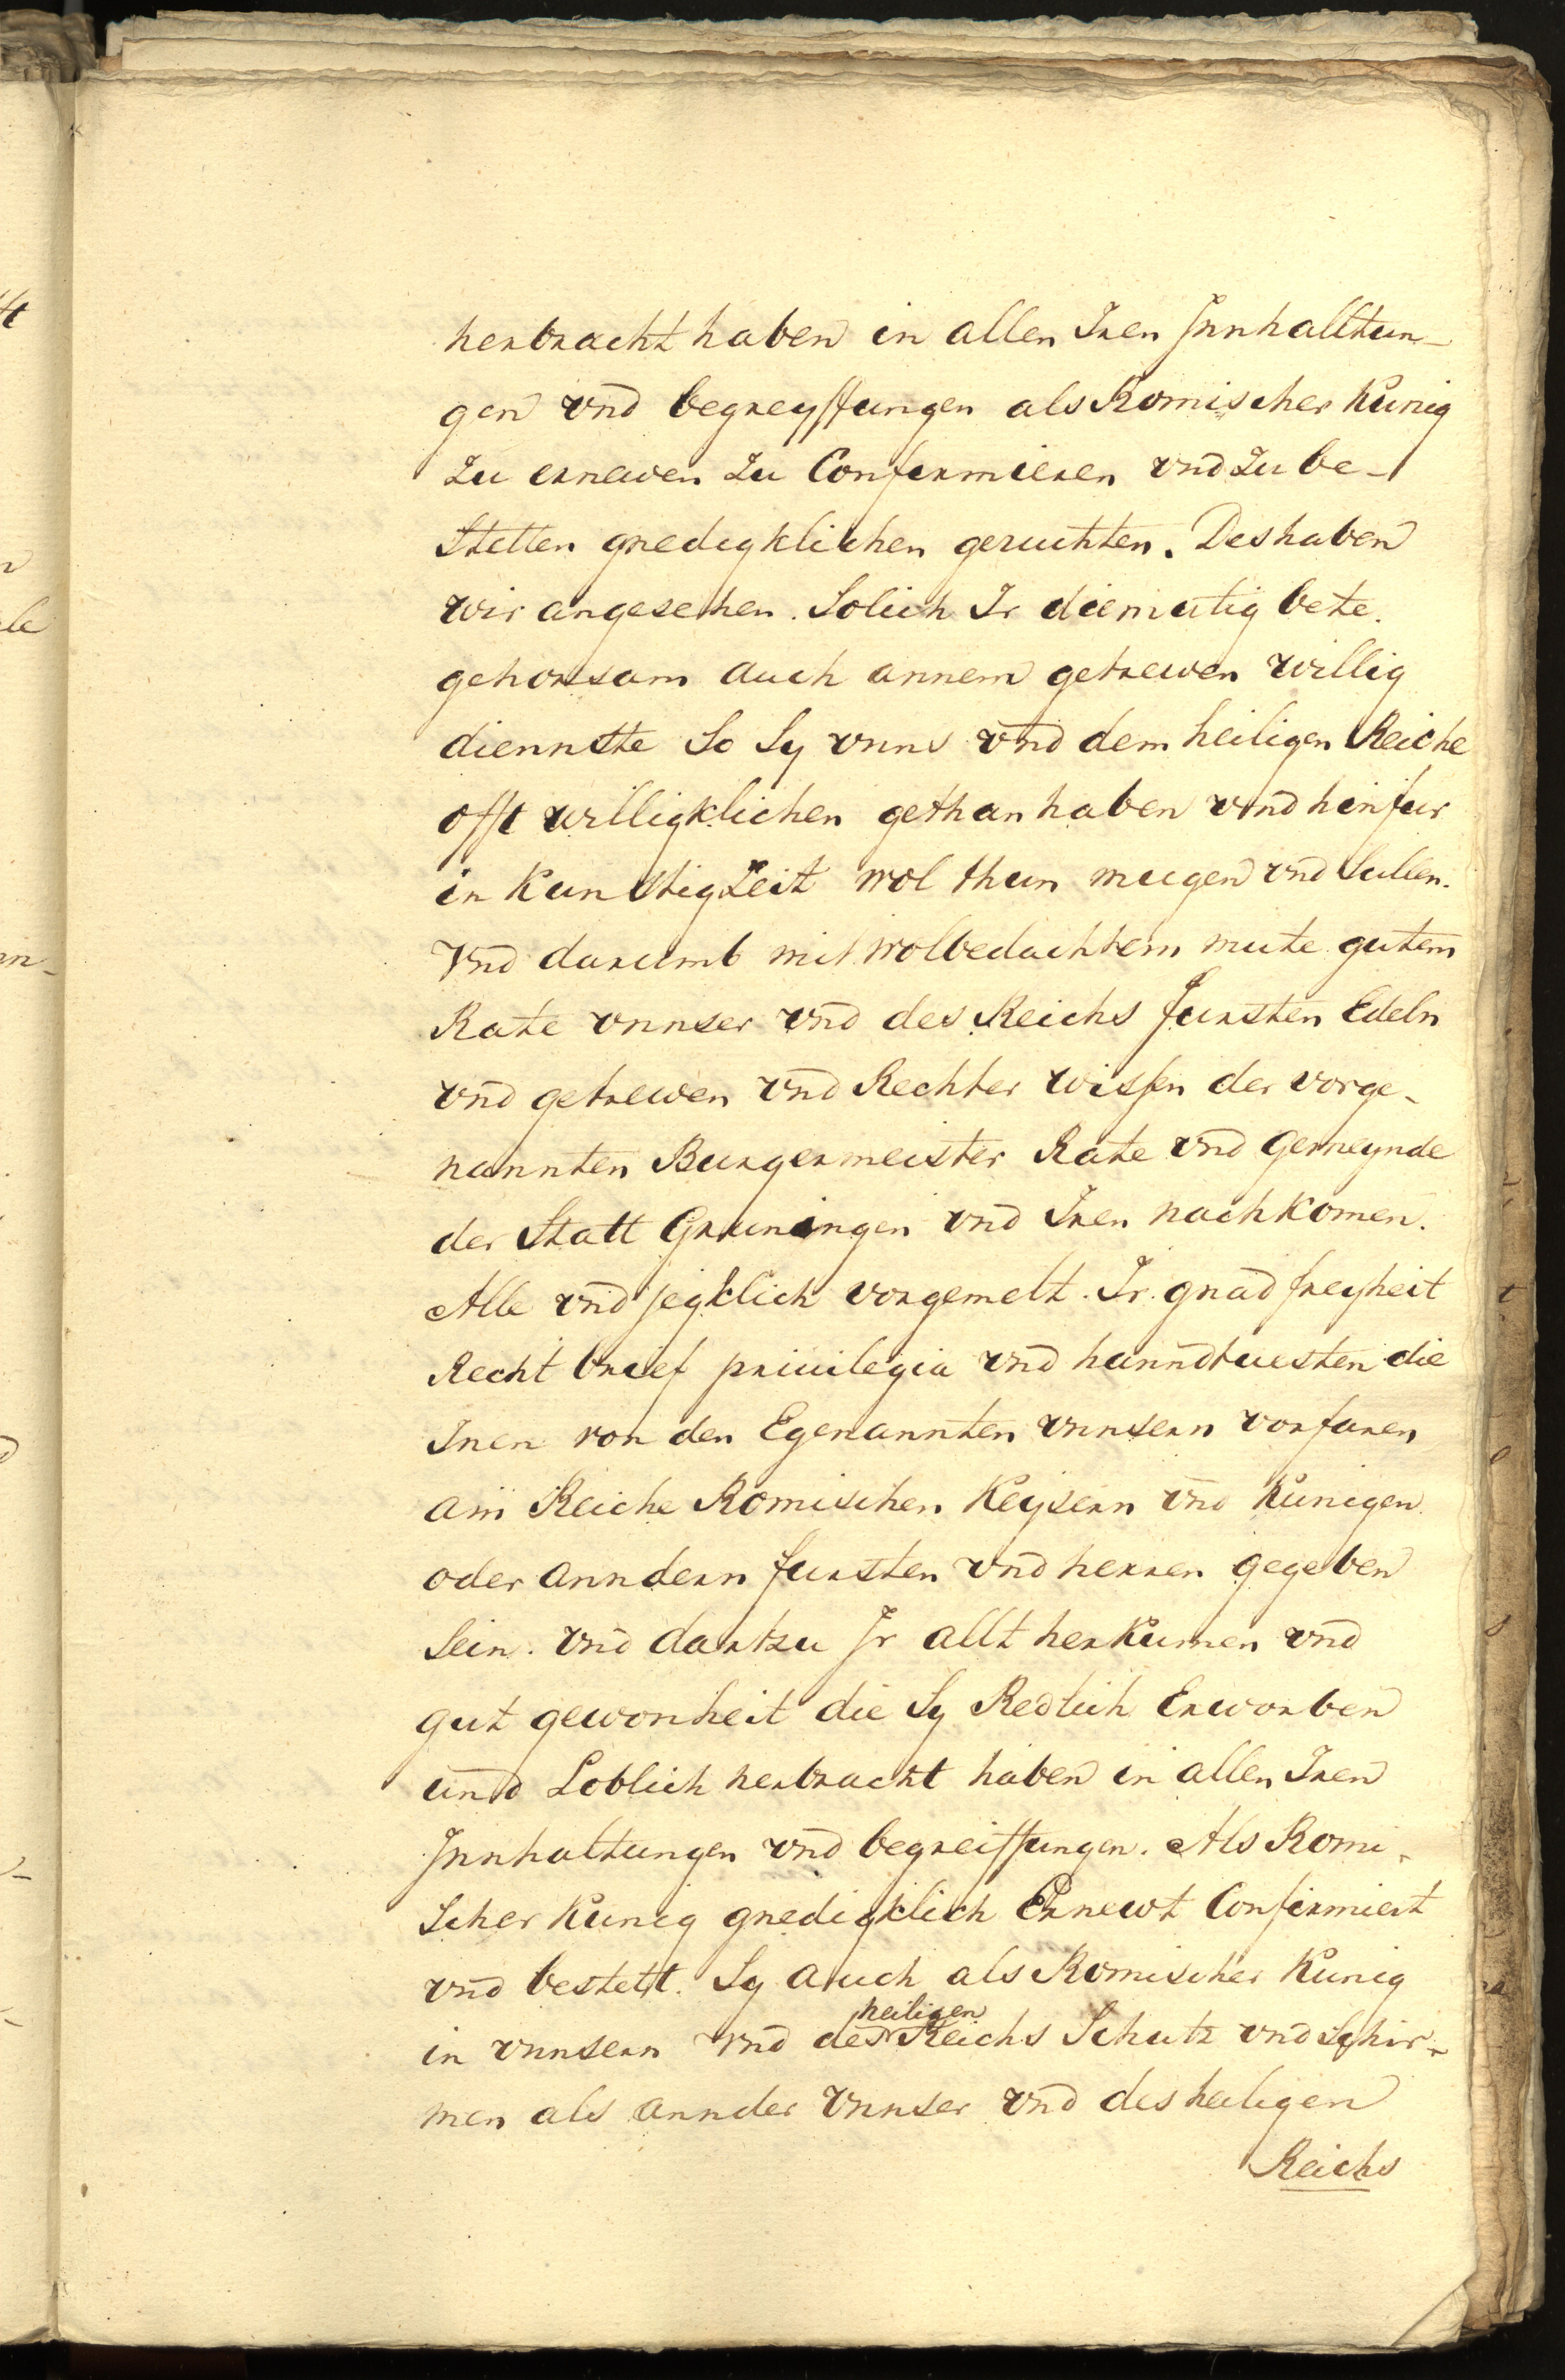 herbracht haben in allen Iren Innhalltun-
gen vnd begreyffungen als Romischer Kunig
zu ernewen zu Confirmieren vnd zu be-
stetten gnedigklichen geruchten. Deshaben
wir angesehen. Solich Ir diemutig bete.
gehorsam auch annem getrewen willig
diennste So Sy vnns vnd dem heiligen Reiche
offt willigklichen gethan haben vnd hinfur
in Kunfftigzeit wol thun mugen vnd Sullen.
Vnd darumb mit wolbedachtem mute gutem
Rate vnnser vnd des Reichs fursten Edeln
vnd getrewen vnd Rechter wissn der vorge-
nannten Burgermeister Rate vnd gemeynde
der Statt Gruningen vnd Iren nachkomen.
Alle vnd jegklich vorgemelt. Ir. gnad freyheit
Recht brief priuilegia vnd hanndtuesten die
Inen von den Egenannten vnnsern vorfaren
am Reiche Romischen Keysern vnd Kunigen
oder anndern fursten vnd herren gegeben
Sein. vnd dartzu Ir allt herkumen vnd
gut gewonheit die Sy Redlich Erworben
und Loblich herbracht haben in allen Iren
Innhaltungen vnd begreiffungen. Als Romi-
scher Kunig gnedigklich Ernewt Confirmiert
vnd bestett. Sy auch als Romischer Kunig
in vnnsern vnd des heiligen Reichs Schutz vnd Schir-
men als annder vnnser vnd des heiligen
Reichs